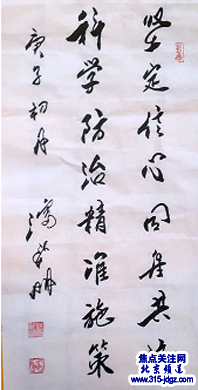 坚定信心同舟共济
科学防治精准施策
庚子初月
焦点关注网
北京频道
www.315-jdgz.com